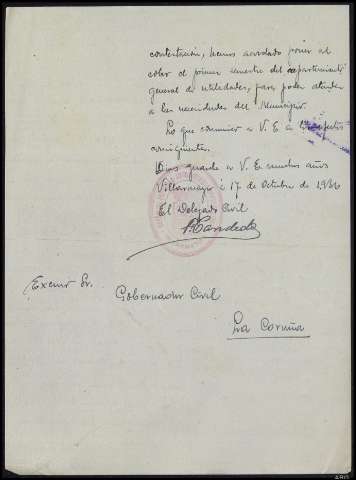 contestación, hemos acordado poner al
cobro el primer semestre del repartimiento
general de utilidades, para poder atender
a las necesidades del Municipio.
Lo que comunico a V. E. a los efectos
consiguientes.
Dios guarde a V. E. muchos años
Villarmayor 17 de Octubre de 1936
El Delegado Civil
Excmo Sr.
Gobernador Civil
La Coruña